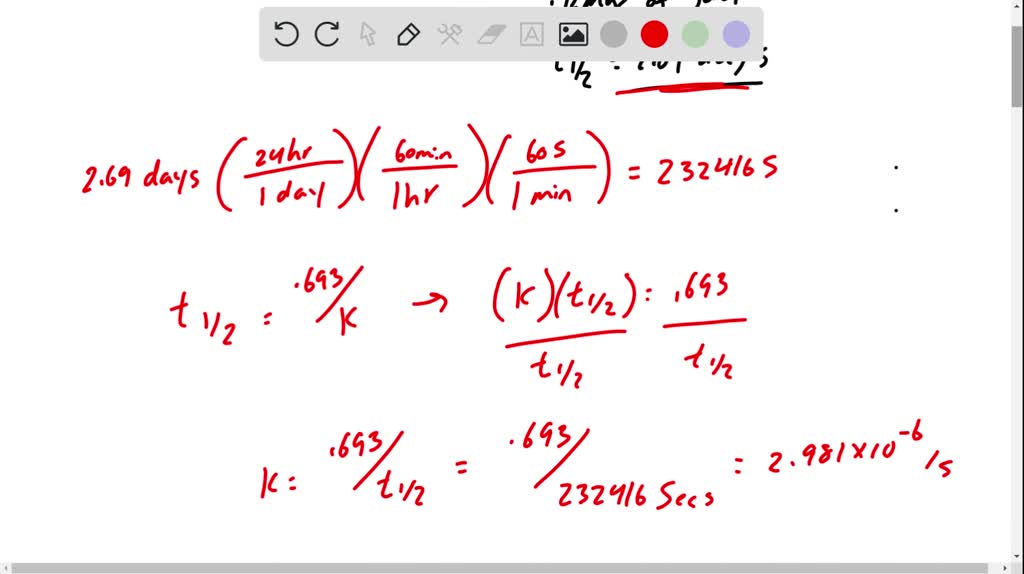 t 1/2 =
2.69 days (24hr / 1 day)(60min / 1hr)(60 s / 1 min) = 232416 S
t 1/2 = .693/K → (K)(t 1/2) / t 1/2 = .693 / t 1/2
K = .693/t 1/2 = .693/232416 Secs = 2.981×10^-6 /s